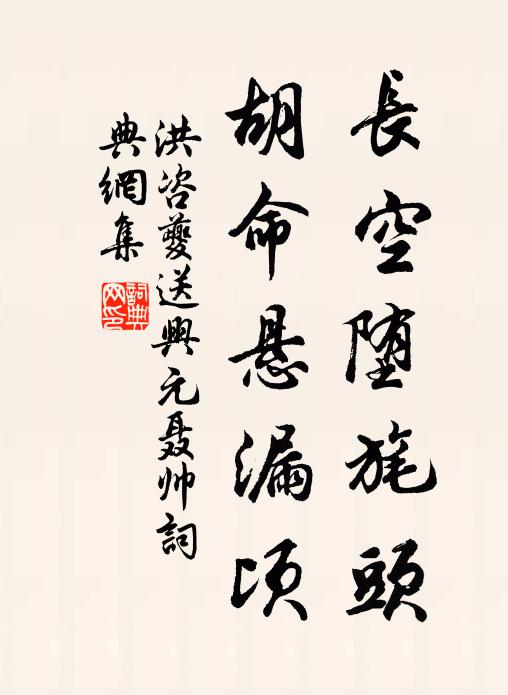 長空堕旄頭
胡命悬漏頃
洪咨夔送興元聂帅詞
典網集
詞典网印